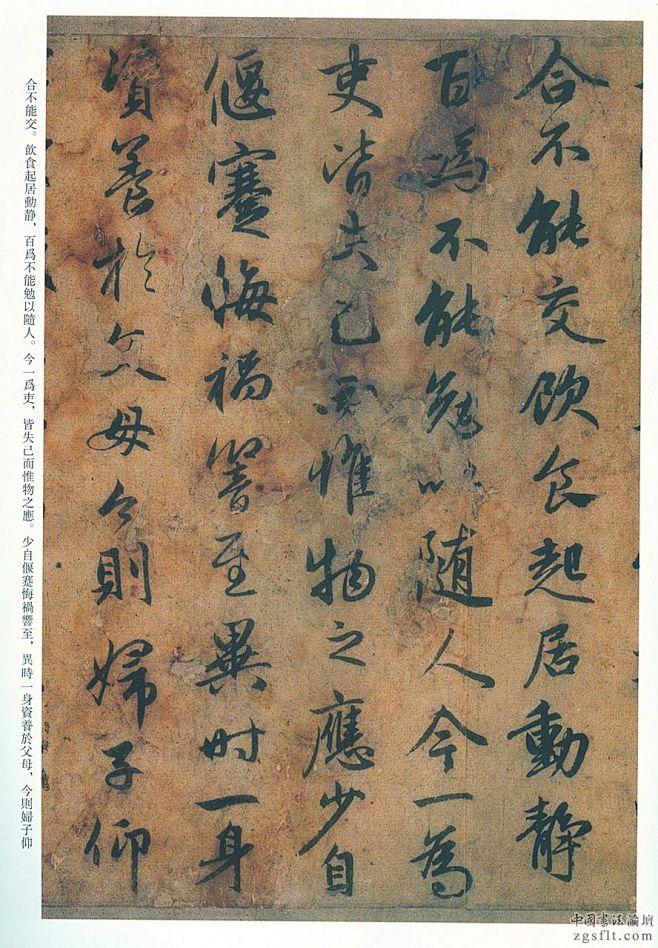 合不能交飲食起居動静
百為不能勉以随人今一為
吏皆失己而惟物之應少自
偃蹇悔禍響至異时一身
資養於父母今則婦子仰
合不能交。飲食起居動静，百爲不能勉以隨人。今一爲吏，皆失己而惟物之應。少自偃蹇悔禍響至，異時一身資養於父母，今則婦子仰
中國書法論壇
zgsflt.com